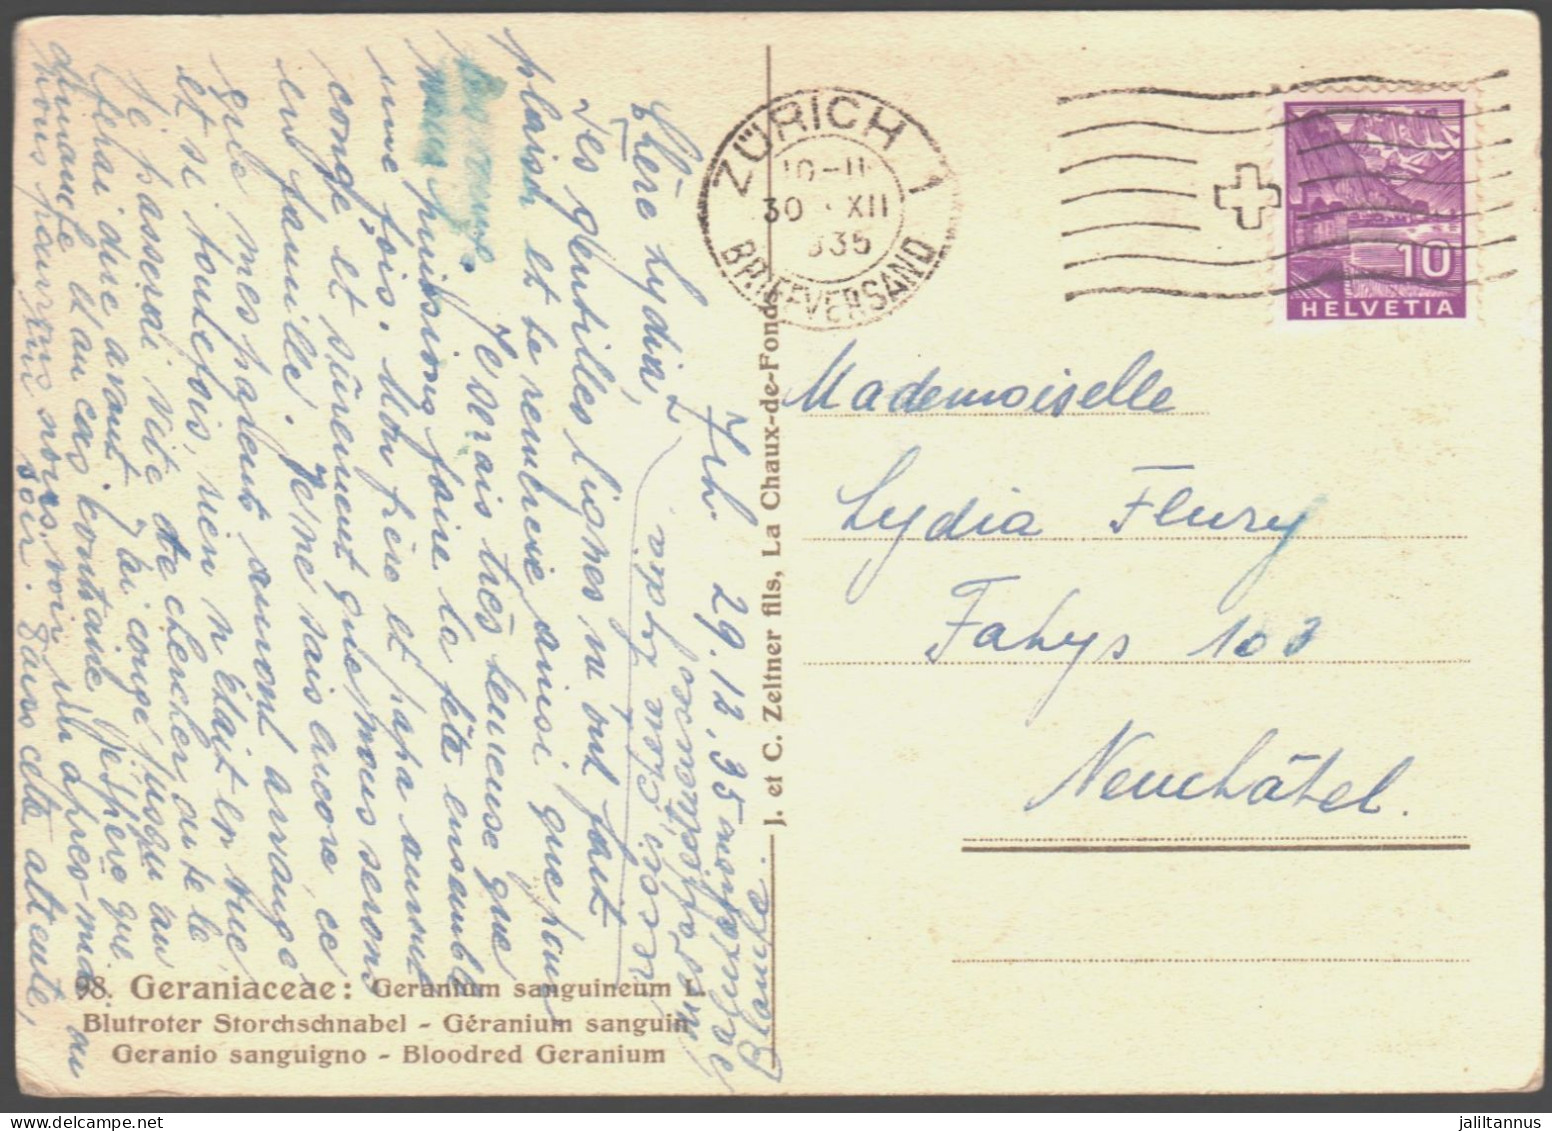 ZÜRICH 1
10-11
30 · XII
935
BRIEFVERSAND
10
HELVETIA
Mademoiselle
Lydia Fleury
Fahys 103
Neuchâtel.
J. et C. Zeltner fils, La Chaux-de-Fonds
Zrh. 29.12.35
Chère Lydia,
Tes gentilles lignes m'ont fait
plaisir et te remercie ainsi que
Je serais très heureuse que
nous puissions faire la fête ensemble
une fois. Mon frère et papa auront
congé et sûrement que nous serons
en famille. Je ne sais encore, ce
que mes parents auront arrangé
et si toutefois, rien n'était en vue
je passerai vite te chercher ou te le
ferai dire avant. J'ai congé jusqu'au
dimanche et au cas contraire j'espère que
nous pourrons nous voir un après-midi ou
un soir. Dans cette attente,
Blanche
98. Geraniaceae: Geranium sanguineum L.
Blutroter Storchschnabel - Géranium sanguin
Geranio sanguigno - Bloodred Geranium
jaliltannus